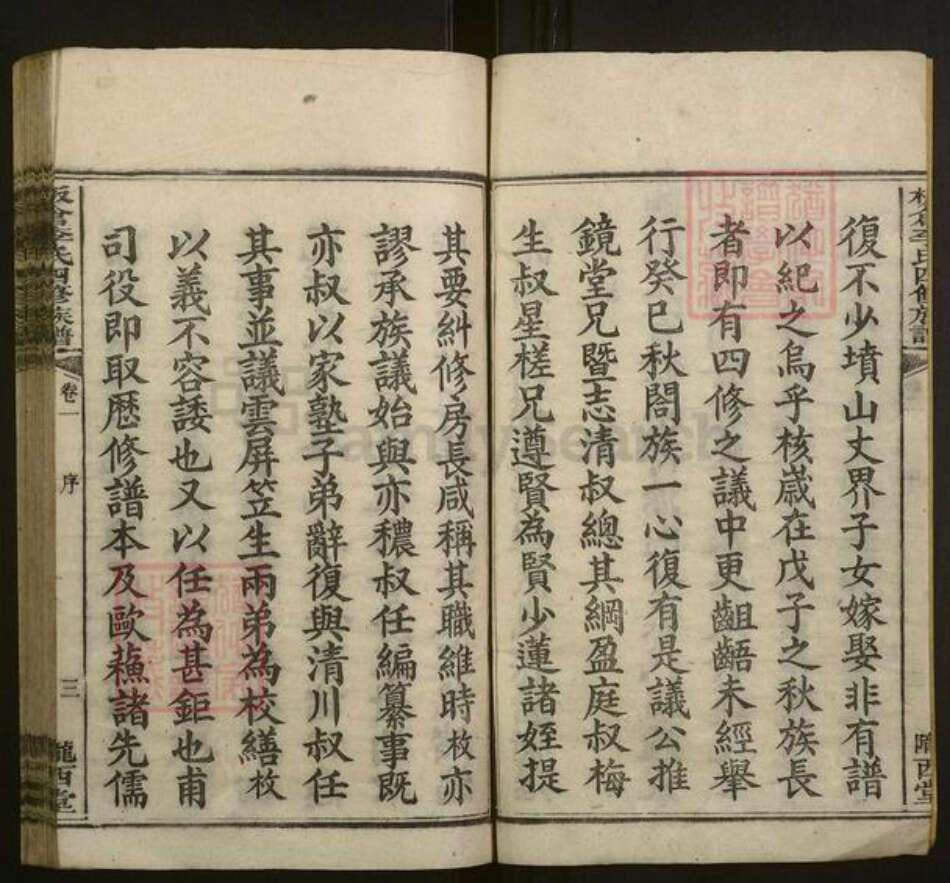 復不少墳山丈界子女嫁娶非有譜
以紀之烏乎核歲在戊子之秋族長
者即有四修之議中更齟齬未經舉
行癸巳秋閤族一心復有是議公推
鏡堂兄暨志清叔總其綱盈庭叔梅
生叔星槎兄遵賢為賢少蓮諸姪提
其要糾修房長咸稱其職維時枚亦
謬承族議始與亦穠叔任編纂事既
亦叔以家塾子弟辭復與清川叔任
其事並議雲屏笠生兩弟為校繕枚
以義不容諉也又以任為甚鉅也甫
司役即取歷修譜本及歐蘓諸先儒
板倉李氏四修族譜
卷一
序
三
隴西堂